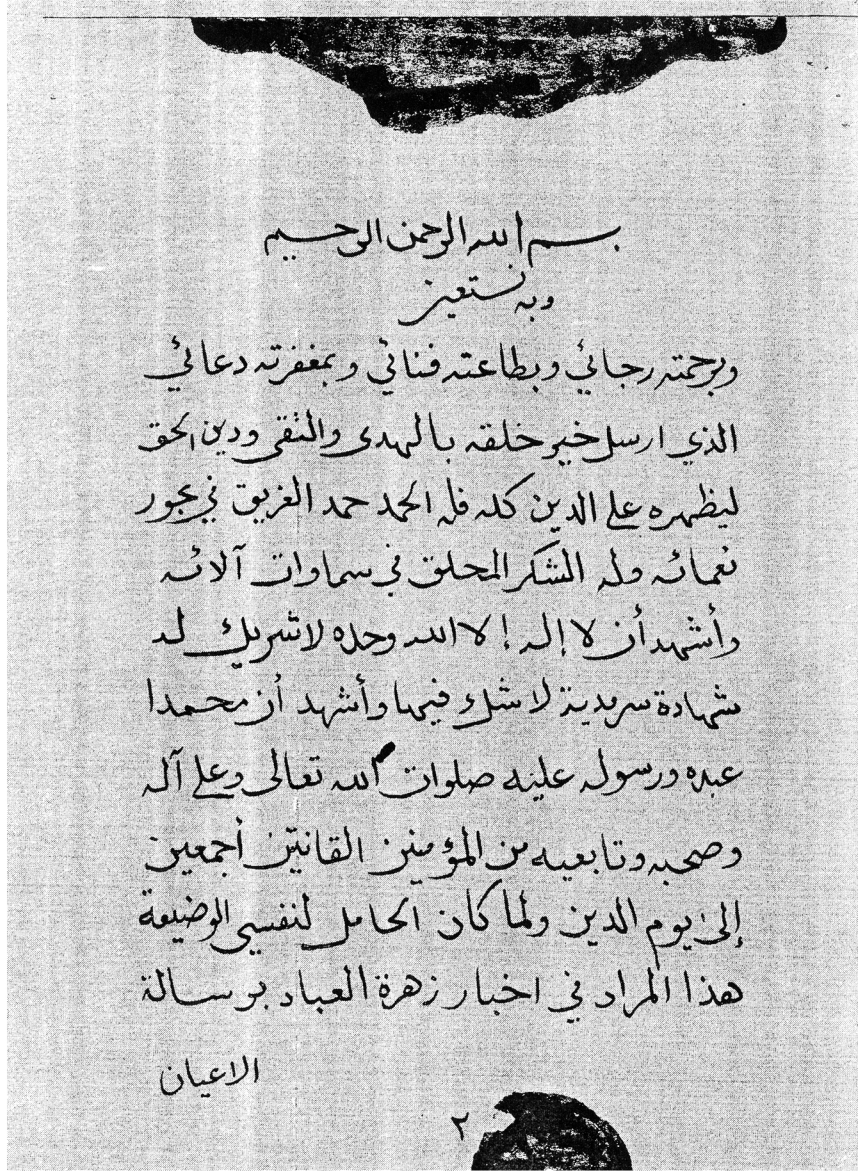 بسم الله الرحمن الرحيم
وبه نستعين
وبرحمته رجائي وبطاعته فنائي وبمغفرته دعائي
الذي ارسل خير خلقه بالهدى والتقى ودين الحق
ليظهره على الدين كله فله الحمد حمد الغريق في بحور
نعمائه وله الشكر المحلق في سماوات آلائه
وأشهد أن لا إله إلا الله وحده لا شريك له
شهادة سرمدية لا شك فيها وأشهد أن محمدا
عبده ورسوله عليه صلوات الله تعالى وعلى آله
وصحبه وتابعيه من المؤمنين القانتين أجمعين
إلى يوم الدين ولما كان الحامل لنفسي الوضيعة
هذا المراد في اخبار زهرة العباد برسالة
الاعيان
٢